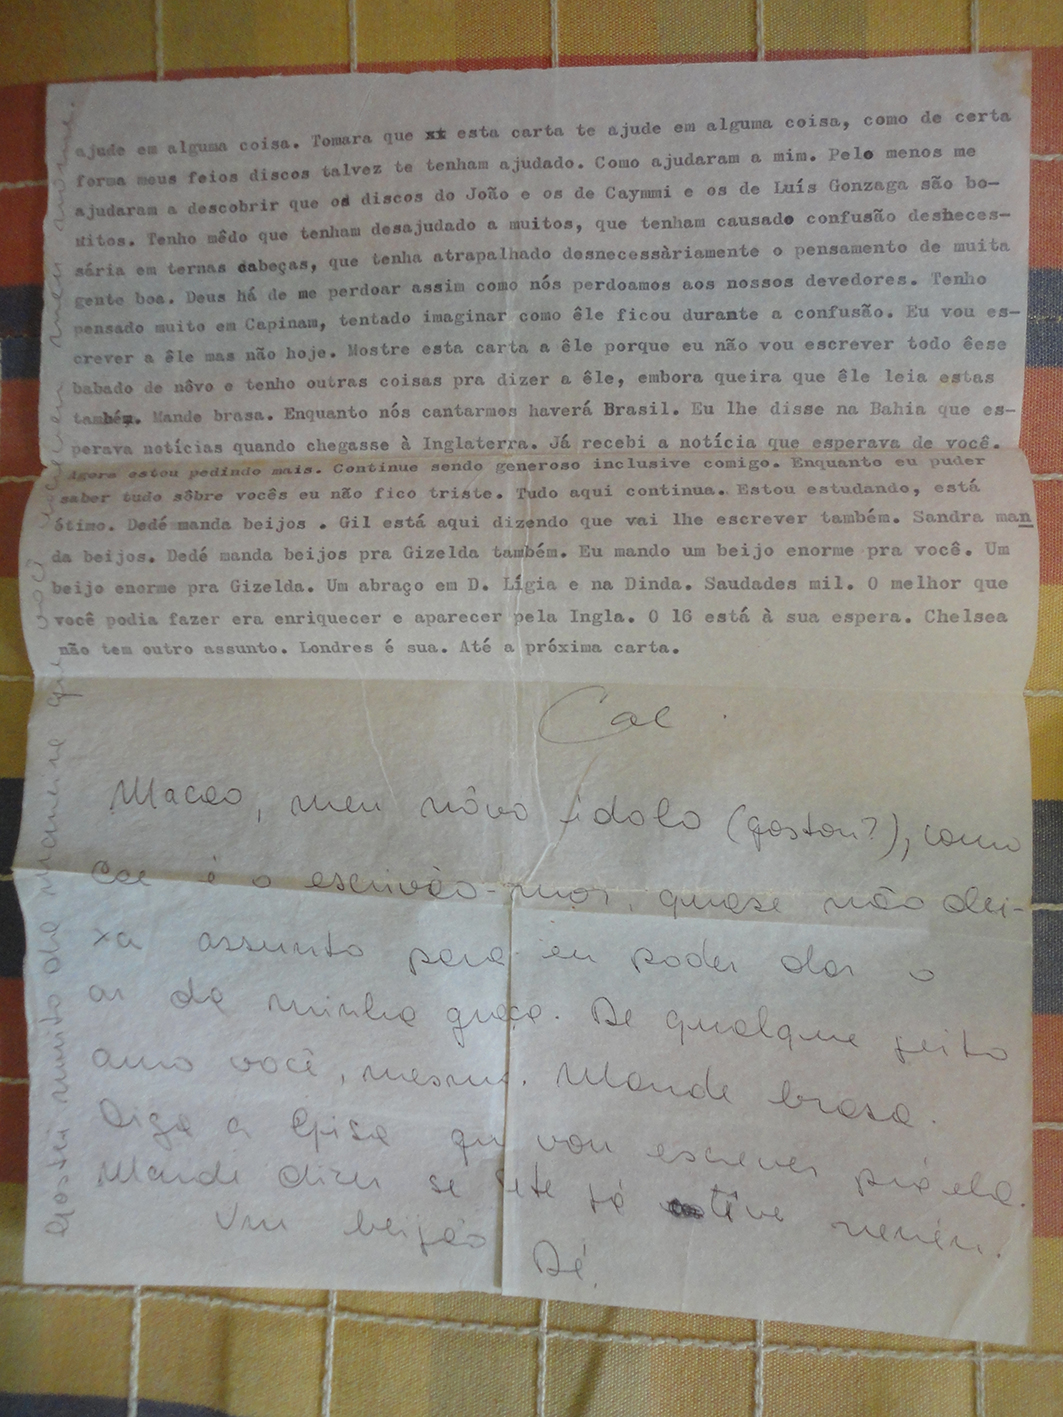 ajude em alguma coisa. Tomara que xt esta carta te ajude em alguma coisa, como de certa
forma meus feios discos talvez te tenham ajudado. Como ajudaram a mim. Pelo menos me
ajudaram a descobrir que os discos do João e os de Caymmi e os de Luís Gonzaga são bo-
nitos. Tenho mêdo que tenham desajudado a muitos, que tenham causado confusão desneces-
sária em ternas cabeças, que tenha atrapalhado desnecessàriamente o pensamento de muita
gente boa. Deus há de me perdoar assim como nós perdoamos aos nossos devedores. Tenho
pensado muito em Capinam, tentado imaginar como êle ficou durante a confusão. Eu vou es-
crever a êle mas não hoje. Mostre esta carta a êle porque eu não vou escrever todo êese
babado de nôvo e tenho outras coisas pra dizer a êle, embora queira que êle leia estas
também. Mande brasa. Enquanto nós cantarmos haverá Brasil. Eu lhe disse na Bahia que es-
perava notícias quando chegasse à Inglaterra. Já recebi a notícia que esperava de você.
Agora estou pedindo mais. Continue sendo generoso inclusive comigo. Enquanto eu puder
saber tudo sôbre vocês eu não fico triste. Tudo aqui continua. Estou estudando, está
ótimo. Dedé manda beijos . Gil está aqui dizendo que vai lhe escrever também. Sandra man
da beijos. Dedé manda beijos pra Gizelda também. Eu mando um beijo enorme pra você. Um
beijo enorme pra Gizelda. Um abraço em D. Lígia e na Dinda. Saudades mil. O melhor que
você podia fazer era enriquecer e aparecer pela Ingla. O 16 está à sua espera. Chelsea
não tem outro assunto. Londres é sua. Até a próxima carta.
Cae
Macao, meu nôvo ídolo (gostou?), como
Cae é o escrivão-mor, quase não dei-
xa assunto para eu poder dar o
ar da minha graça. De qualque jeito
amo você, mesmo. Mande brasa.
Diga a Gisa qu vou escrever prá ela.
Mande dizer se Tete já teve neném.
Um beijão
Dé.
Gostei muito da maneira que você